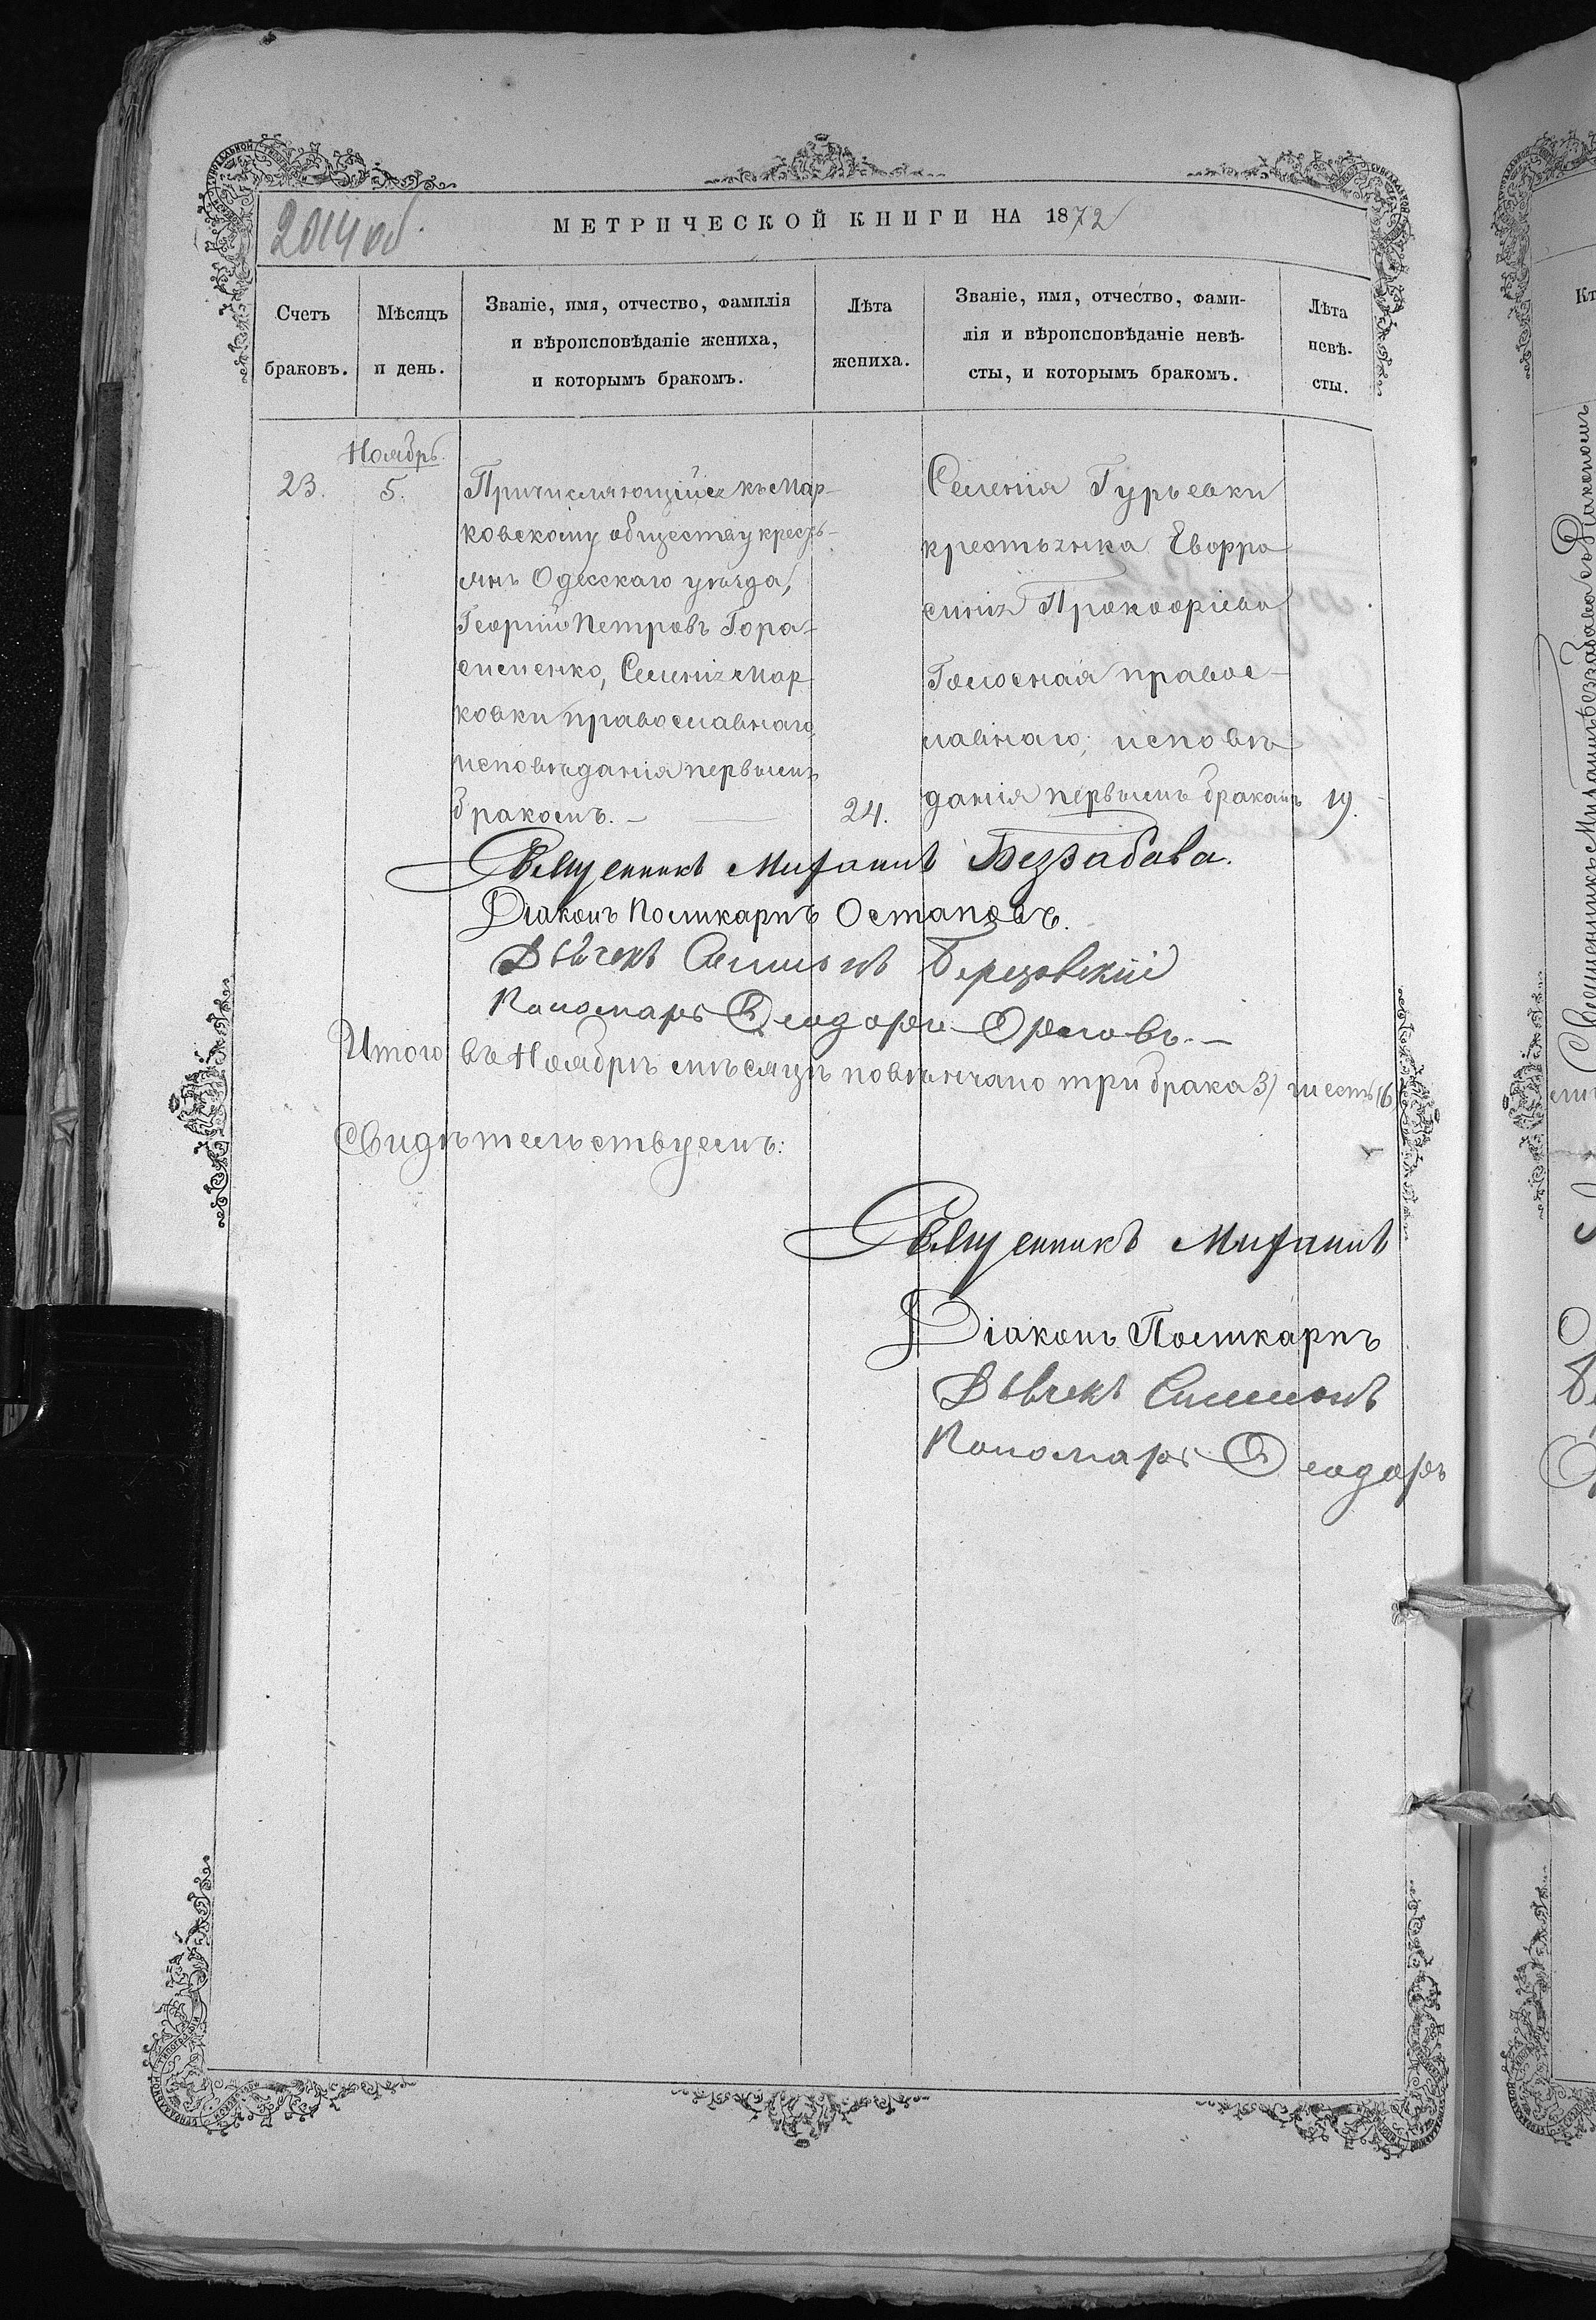 2014 об.
МЕТРИЧЕСКОЙ КНИГИ НА 1872
Счетъ браковъ.
Мѣсяцъ и день.
Званіе, имя, отчество, фамилія
и вѣроисповѣданіе жениха,
и которымъ бракомъ.
Лѣта жениха.
Званіе, имя, отчество, фами-
лія и вѣроисповѣданіе невѣ-
сты, и которымъ бракомъ.
Лѣта невѣ-
сты.
Ноябрь.
23.
5.
Причисляющійся къ Мар-
ковскому обществу кресть-
янъ Одесскаго уѣзда,
Георгій Петровъ Гора-
сименко, Селенія Мар
ковки православнаго
исповѣданія первымъ
бракомъ.
24.
Селенія Гурьевки
крестьянка Евфро
синія Прокофіева
Голосная правос-
лавнаго исповѣ
данія первымъ бракомъ
19.
Священникъ Митаній Беззабава.
Діаконъ Поликарпъ Остаповъ.
Дьячекъ Симеонъ Березовскій
Пономарь Ѳеодоръ Орловъ.
Итого въ Ноябрѣ мѣсяцѣ повѣнчано три брака 3/ шесть 6
Свидѣтельствуемъ:
Священникъ
Діаконъ Поликарпъ
Дьячекъ Симеонъ
Пономарь Ѳеодоръ